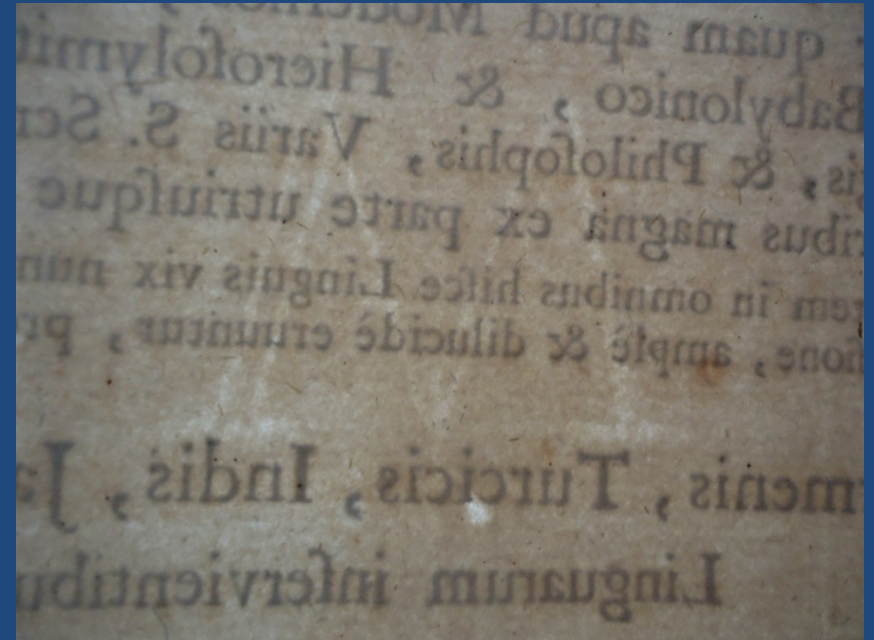 quam apud Modernos,
Babylonico, & Hieroſolymit
gis, & Philoſophis, Variis S. Scr
ribus magnâ ex parte utriuſque
rem in omnibus hiſce Linguis vix num
ſione, amplè & dilucidè eruuntur, pr
rmenis, Turcicis, Indis, Ja
Linguarum inſervientibu